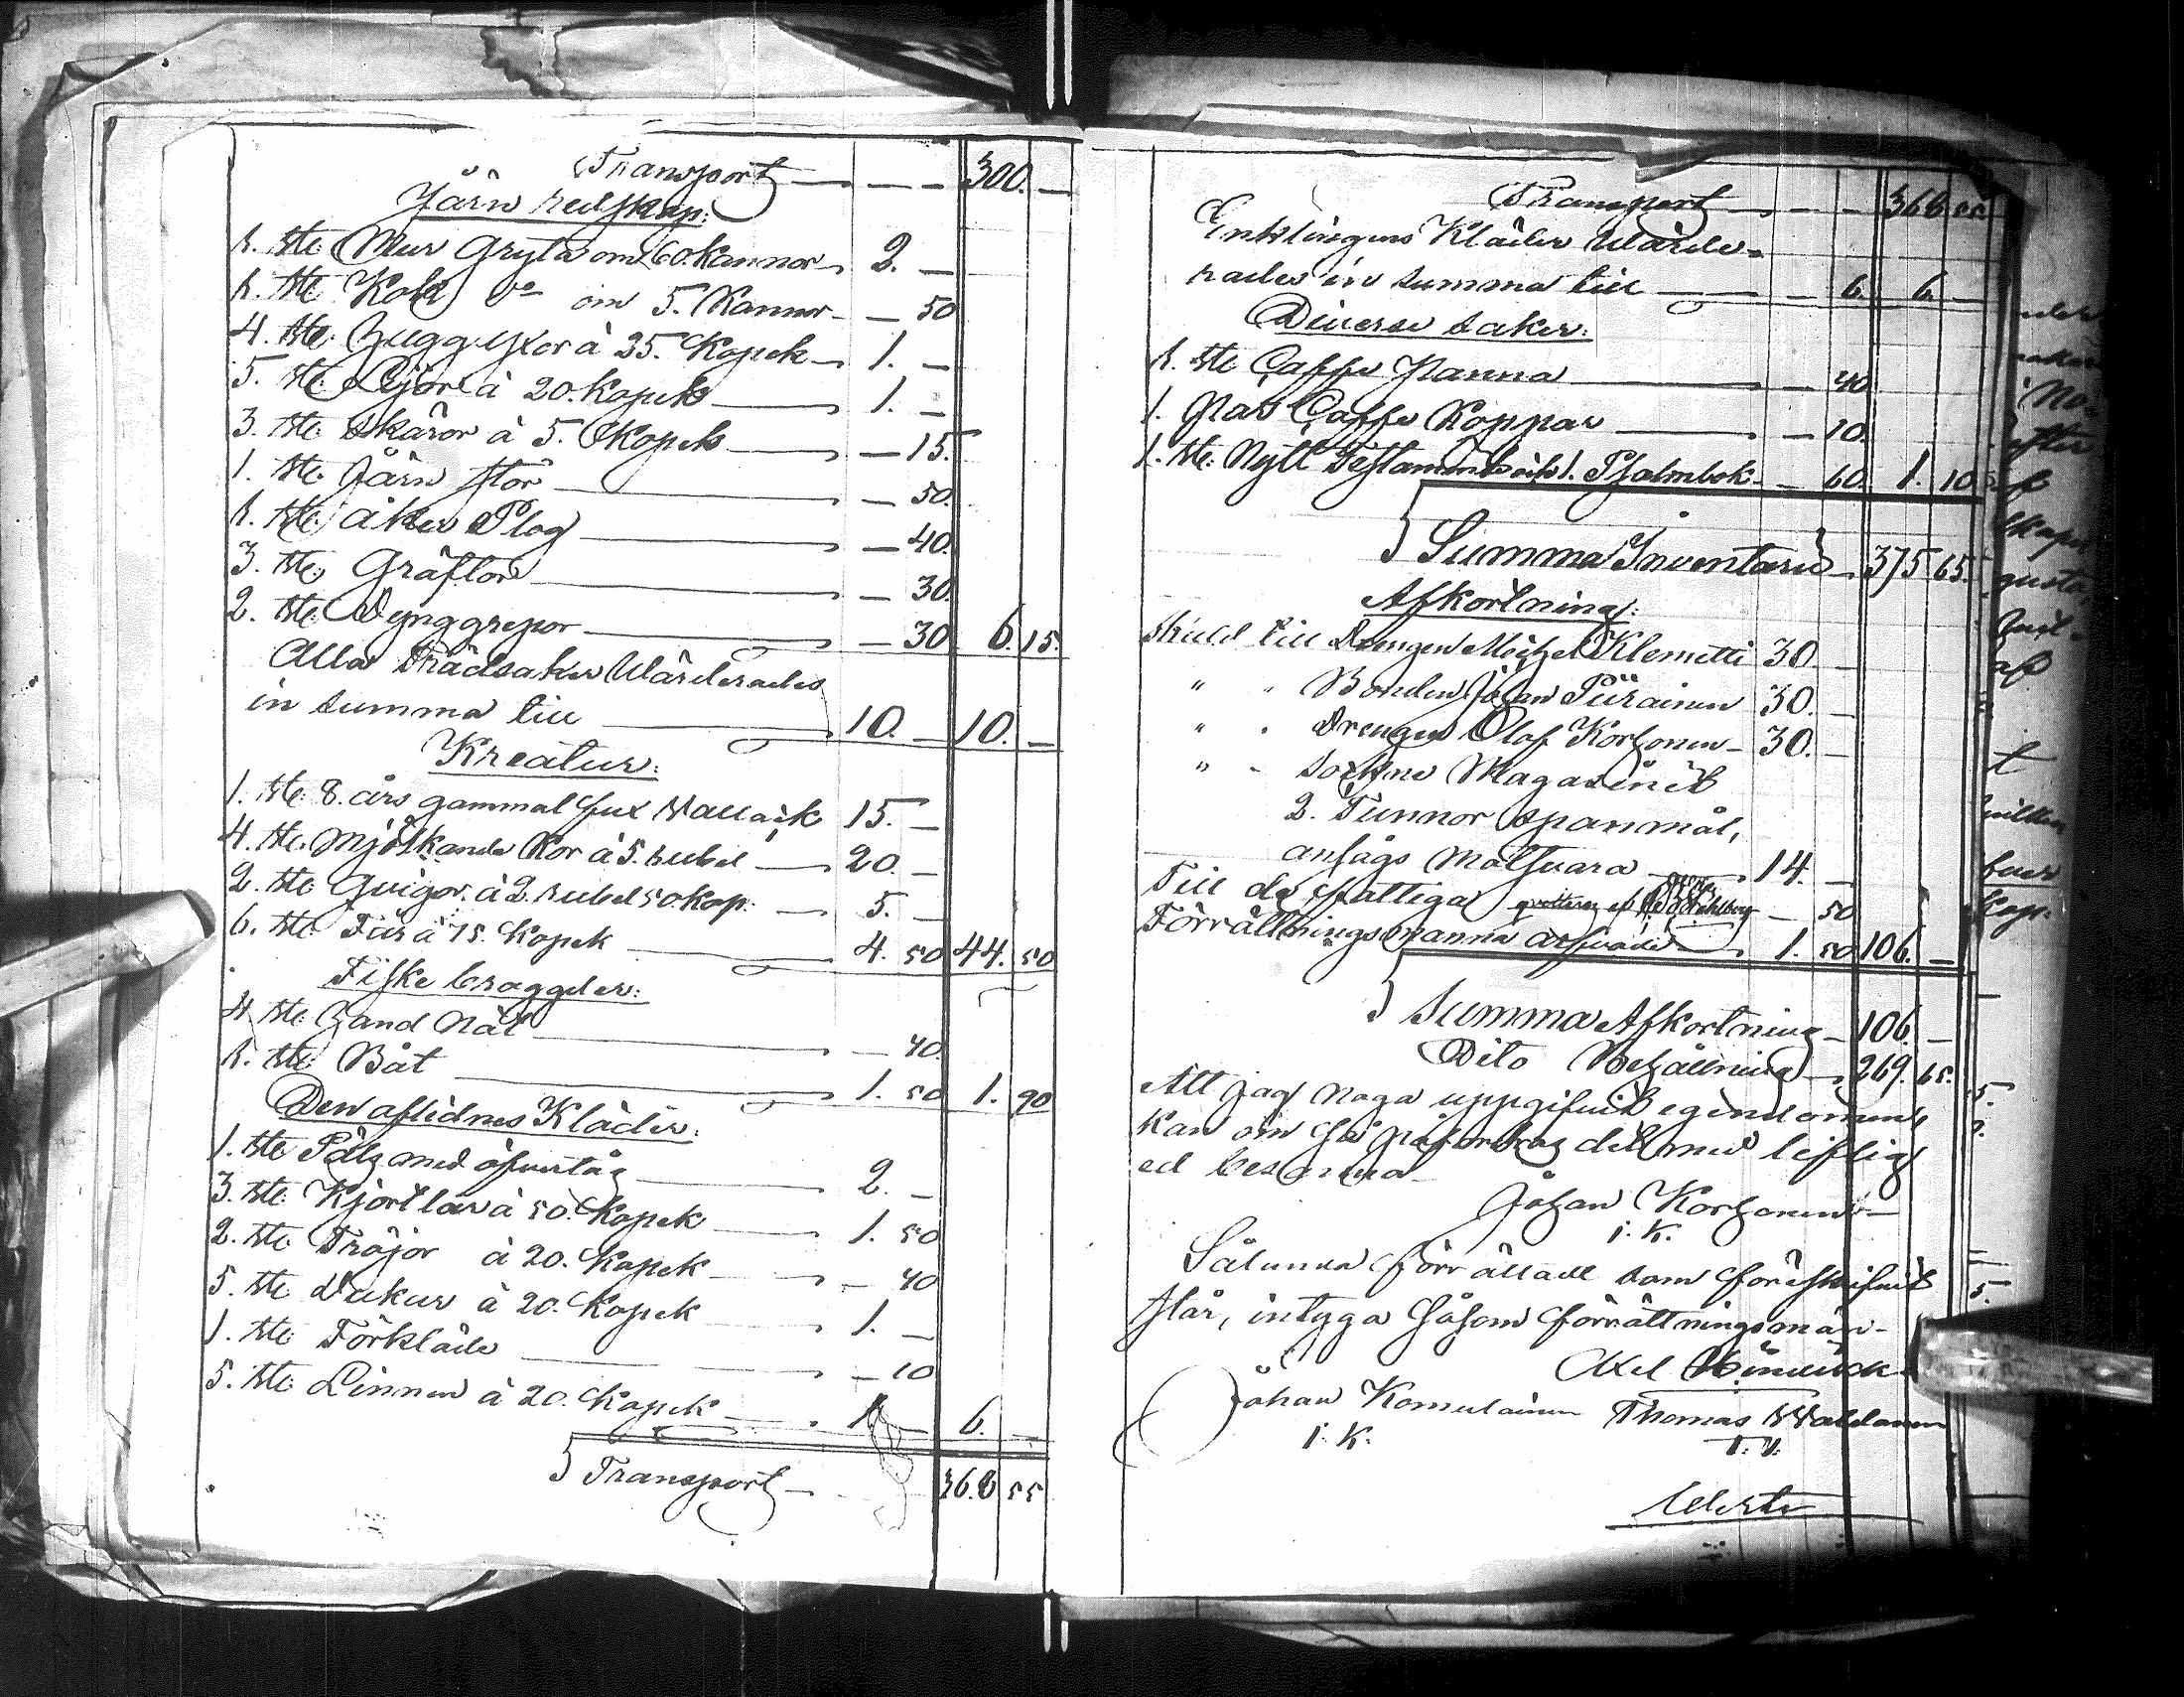 Transport — — — 300. —
Järn redskap:
1. st: Mur Gryta om 60. Kannor 2. —
1. st: Kok do om 5. Kannor — 50
4. st: Hugg Yxor à 25. Kopek 1. —
5. st: Lijor à 20. Kopek 1. —
3. st: Skäror à 5. Kopek — 15.
1. st: Järn stör — 50.
1. st: Åker Plog — 40.
3. st: Gräftor — 30.
2. st: Dynggrepor — 30 6. 15.
Alla Trädsaker Wärderades
in summa till 10. — 10. —
Kreatur:
1. st: 8. års gammal fux Wallack 15. —
4. st: Mjölkande Kor à 5. rubel 20. —
2. st: Quigor à 2. rubel 50. kop: 5. —
6. st: Får à 75. Kopek 4. 50 44. 50
Fiske braggder:
4. st: Hand Nät — 40.
1. st: Båt 1. 50 1. 90
Den aflidnes Kläder:
1. st: Päls med öfvertåg 2. —
3. st: Kjortlar à 50. Kopek 1. 50
2. st: Tröjor à 20. Kopek — 40
5. st: Dukar à 20. Kopek 1. —
1. st: Förkläde — 10
5. st: Linnen à 20. Kopek 1 — 6. —
Transport — 368 55
Transport — — — 368 55
Enklingens Kläder Wärde-
rades in summa till — 6. 6. —
Diverse saker:
1. st: Caffe Panna — 40
1. Par Caffe Koppar — 10.
1. st: Nytt Testamente och 1. Psalmbok — 60. 1. 10
Summa Inventarii 375 65.
Afkortning:
Skuld till Drengen Michel Klemetti 30 —
" " Bonden Johan Piirainen 30. —
" " Drengen Olof Korhonen 30. —
" " Sockne Magasinet
2. Tunnor Spanmål,
anslags 14. —
Till de fattiga — 50
Förrättningsmanna arfvode 1. 50 106. —
Summa Afkortning 106. —
Dito Behållning 269. 65.
Att jag noga uppgifvit egendomen,
kan om så påfordras det med liflig
ed besanna
Johan Korhonen
i. K.
Sålunda förrättadt som föreskrifvit
står, intyga såsom förrättningsmän.
Axel
Johan Komulainen Thomas
i. K. T. V.